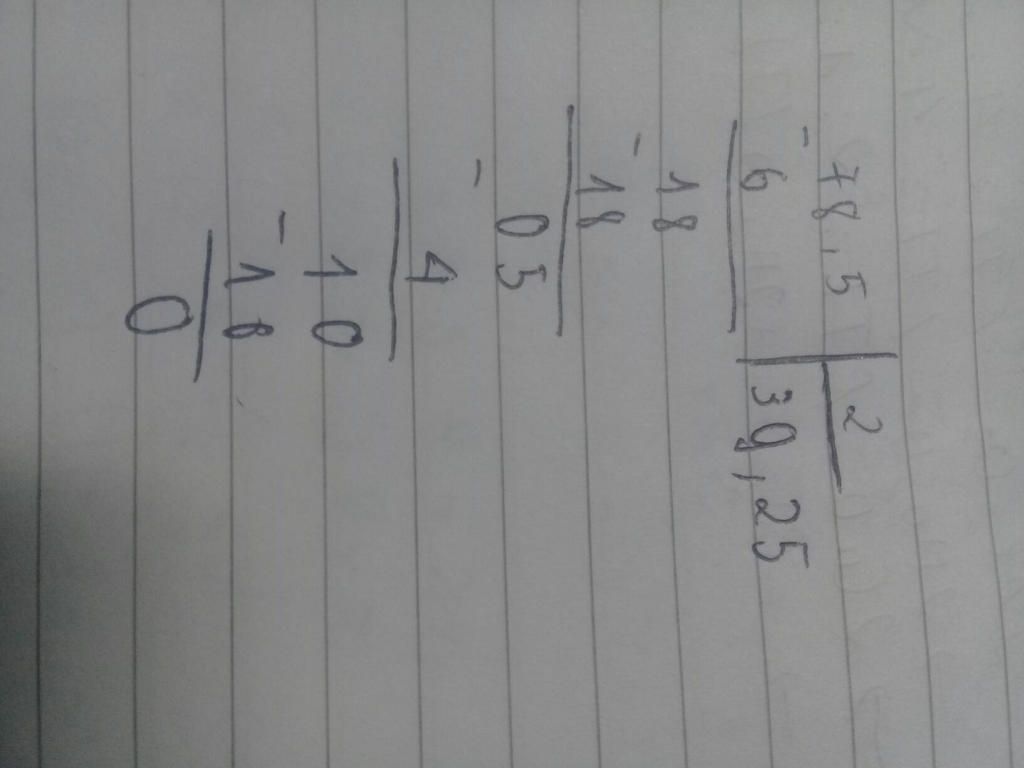 78,5 2
- 6 39,25
18
- 18
05
- 4
10
- 10
0